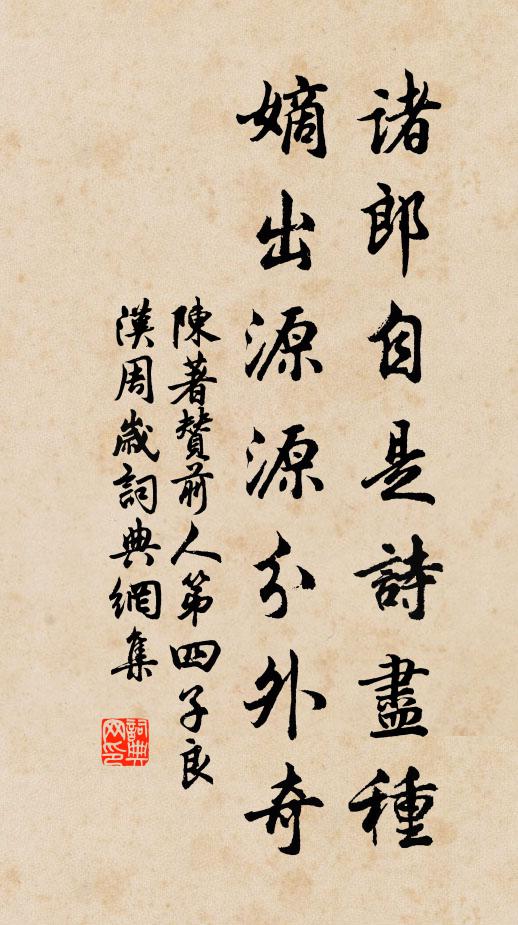 诸郎自是詩盡種
嫡出源源分外奇
陳著贊前人第四子良
漢周嵗詞典網集
詞典网印